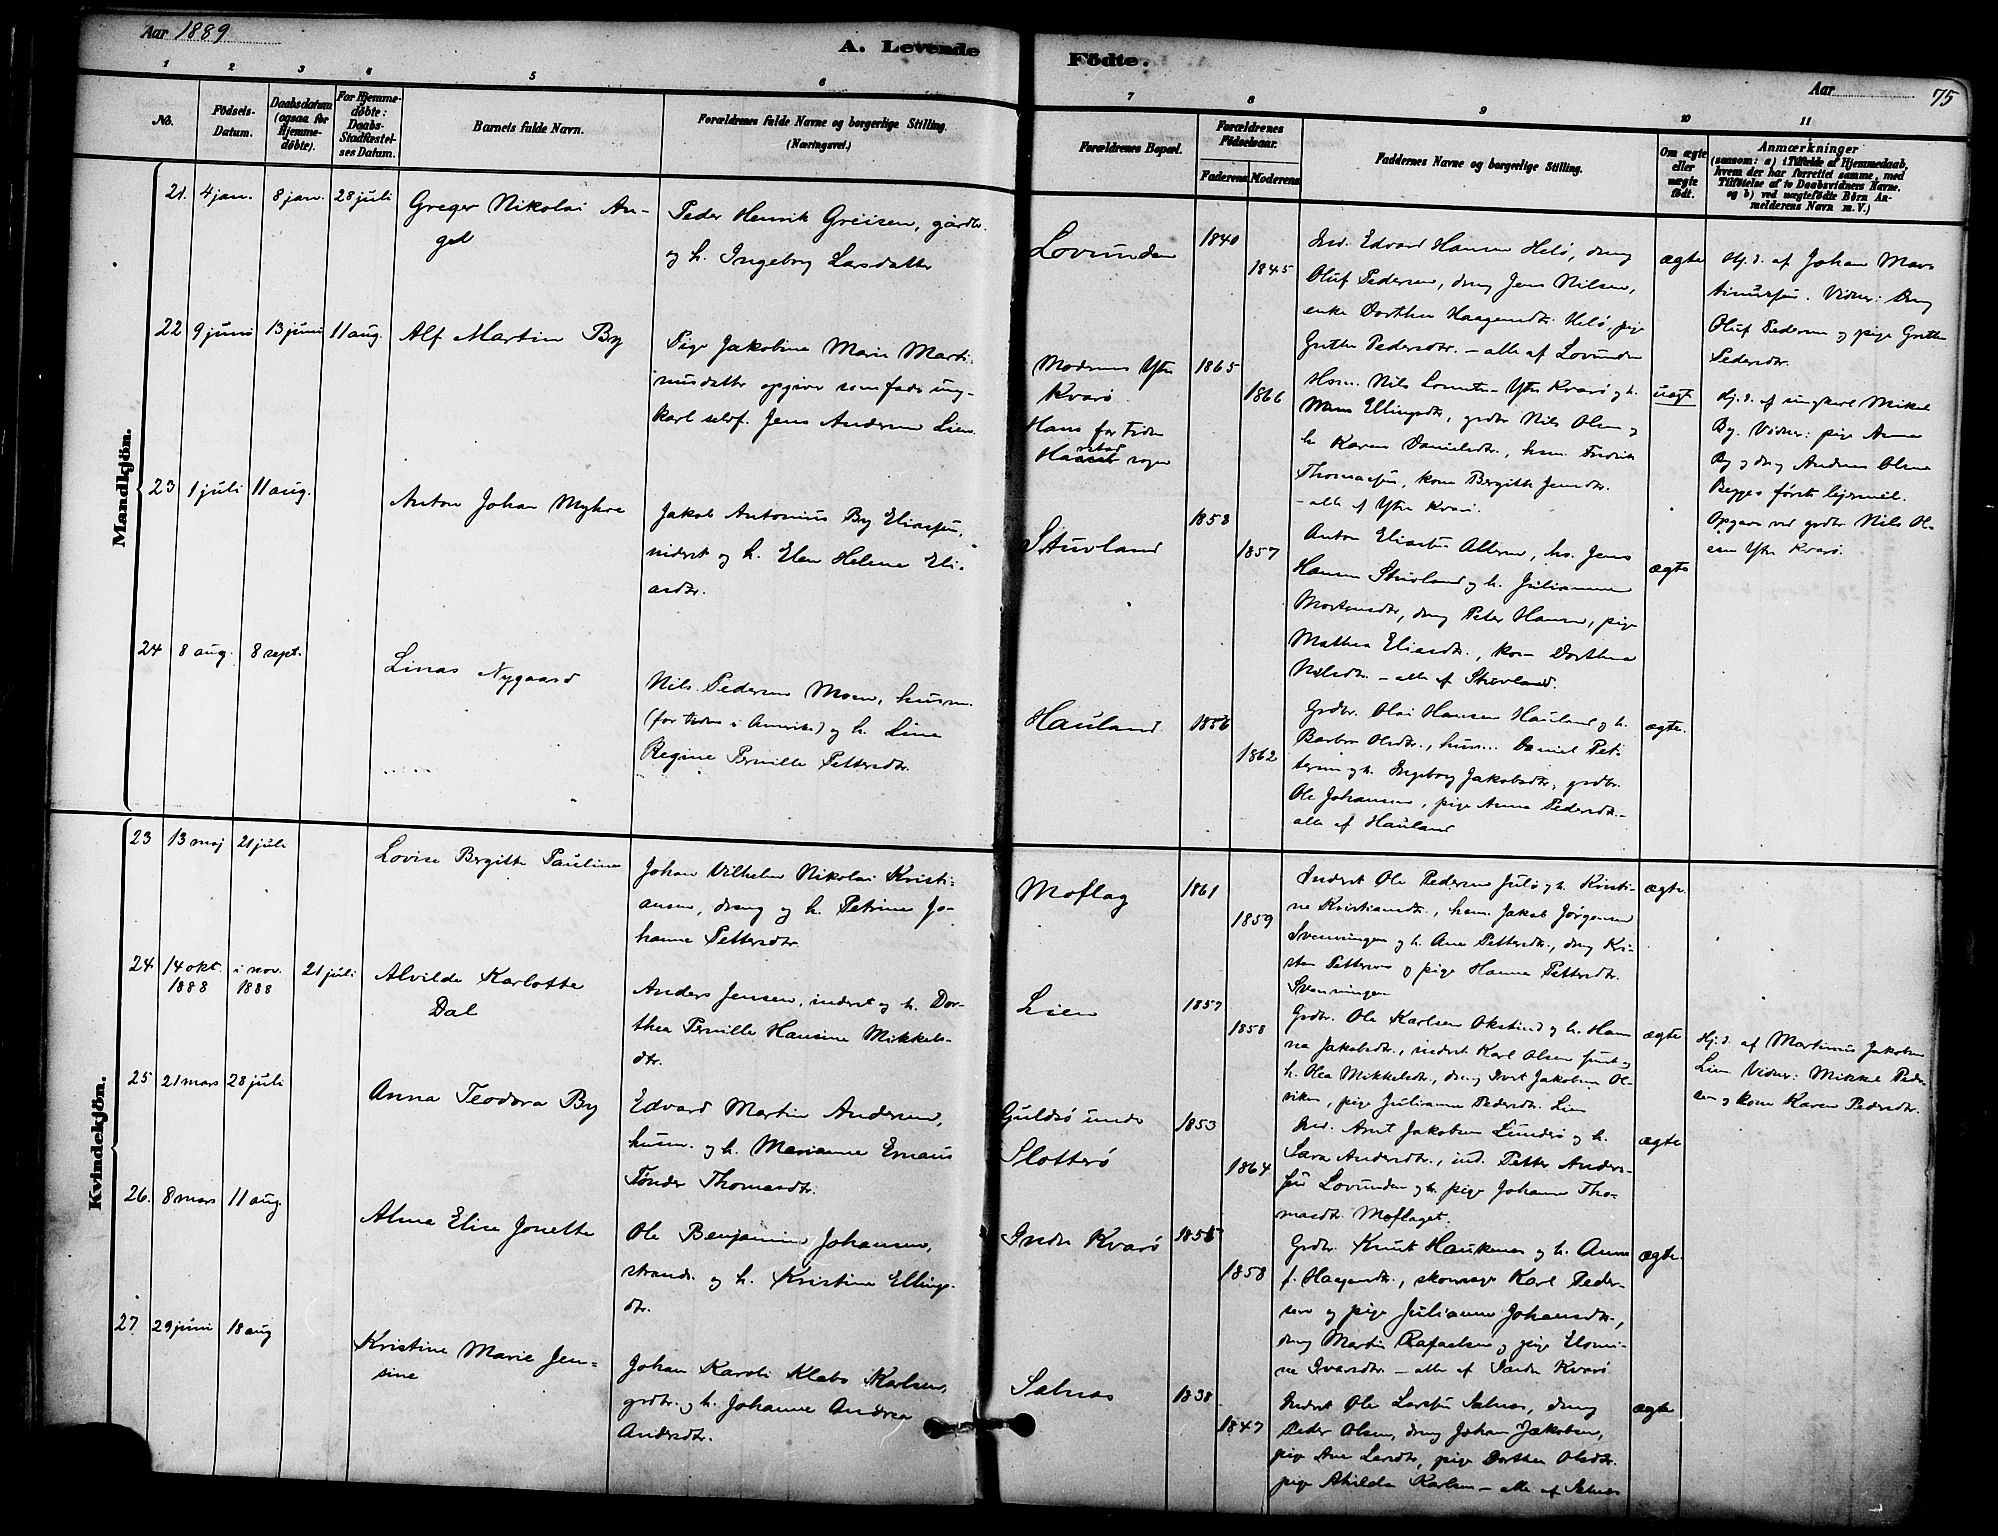 Aar 1889
A. Levende
Fødte.
Aar
75
1 2 3 4 5 6
7 8 9 10 11
No.
Fødsels-
Datum.
Daabsdatum
(ogsaa for
Hjemme-
døbte).
For Hjemme-
døbte:
Daabs-
Stadfæstel-
ses Datum.
Barnets fulde Navn.
Forældrenes fulde Navne og borgerlige Stilling.
(Næringsvei.)
Forældrenes Bopæl.
Forældrenes
Fødselsaar.
Faderens Moderens
Faddernes Navne og borgerlige Stilling.
Om ægte
eller
uægte
født.
Anmærkninger
(saasom: a) i Tilfælde af Hjemmedaab,
hvem der har forrettet samme, med
Tilføielse af to Daabsvidners Navne,
og b) ved uægtefødte Børn An-
melderens Navn m.V.)
Mandkjön.
21. 4 jan. 8 jan. 28 juli
Greger Nikolai An-
gel
Peder Henrik Greisen, gårdbr.
og h. Ingeborg Larsdatter
Lovunden
1840
1845
Ind. Edvard Hansen Helø, dreng
Oluf Pedersen, dreng Jens Nilsen,
enke Dorthea Haagensdtr. Helø, pige
Grethe Pedersdtr. – alle af Lovunden
ægte
Hj.d. af Johan Mar-
tinussen. Vidner: Dreng
Oluf Pedersen og pige Grethe
Pedersdtr.
22 9 juni 13 juni 11 aug.
Alf Martin By
Pige Jakobine Marie Marti-
nusdatter opgiver som fader ung-
karl selvf. Jens Andersen Lien.
Moderens Ytre
Kvarø.
Hans for Tiden
Hasset stad sogn
1865
1866
Hsm. Nils Ytre Kvarø og h.
Ellingsdtr., grdbr Nils Olsen og
h. Karen Danielsdtr., hsm. Fredrik
Thomassen, kone Bergitte Jensdtr.
– alle af Ytre Kvarø.
uægte
Hj.d. af ungkarl Mikal
By. Vidner: pige Anna
By og dreng Andreas Olsen
Begges første lejermål.
Opgave ved grdbr Nils Ol-
sen Ytre Kvarø.
23 1 juli 11 aug.
Anton Johan Myhre
Jakob Antonius By Eliassen,
inderst og h. Elen Helene Eli-
asdtr.
Stuvland
1858
1857
Anton Eliassen Alteren, hs. Jens
Hansen Stuvland og h. Julianna
Mortensdtr, dreng Peter Hansen, pige
Mathea Eliasdtr., kone Dorthea
Nilsdtr. – alle af Stuvland.
ægte
24 8 aug. 8 sept.
Linas Nygaard
Nils Pedersen Moen, husm.
(for tiden i Amerika) og h. Line
Regine Pernille Pettersdtr.
Hauland
1856
1862
Grdbr. Olai Hansen Hauland og h.
Barbra Olsdtr., husm. Daniel Pet-
tersen og h. Ingeborg Jakobsdtr, grdbr.
Ole Johansen, pige Anna Pedersdtr. –
alle af Hauland
ægte.
Kvindekjön.
23 13 maj 21 juli
Lovise Bergitte Pauline
Johan Vilhelm Nikolai Kristi-
ansen, dreng og h. Petrine Jo-
hanne Pettersdtr.
Moflag
1861
1859
Inderst Ole Pedersen Julø og h. Kristi-
ne Kristiansdtr., hsm. Jakob Jørgensen
Svenningen og h. Ane Pettersdtr., dreng Kri-
sten Pettersen og pige Hanna Pettersdtr.
Svenningen
ægte.
24 14 okt. 1888 i nov. 1888 21 juli
Alvilde Karlotte
Dal
Anders Jensen, inderst og h. Dor-
thea Pernille Hansine Mikkels-
dtr.
Lien
1857
1858
Grdbr. Ole Karlsen Okstind og h. Han-
na Jakobsdtr., inderst Karl Olsen og
h. Olea Mikkelsdtr., dreng Ivert Jakobsen Ol-
viken, pige Julianne Pedersdtr. Lien
ægte
Hj.d. af Martinus Jakobsen
Lien Vidner: Mikkel Peder-
sen og kone Karen Pedersdtr.
25 21 mars 28 juli
Anna Teodora By
Edvard Martin Andersen,
husm. og h. Marianne Emaus
Tønder Thomasdtr.
Guldsø under
Slotterø
1853
1864
Ind. Arnt Jakobsen Lunderø og h.
Sara Andersdtr., ind. Petter Anders-
sen Lovunden og h. pige Johanne Tho-
masdtr Moflaget.
ægte
26. 8 mars 11 aug.
Alma Elise Jonette
Ole Benjamin Johansen,
strands. og h. Kristine Ellings-
dtr.
Indre Kvarø
1855
1858
Grdbr. Knut Haukenes og h. Anne
f. Haagensdtr., skomager Karl Peder-
sen og pige Julianne Johansdtr.,
dreng Martin Rafaelsen og pige Elomi-
ne Ivarsdtr. – alle af Indre Kvarø
ægte.
27 29 juni 18 aug
Kristine Marie Jen-
sine
Johan Karoli Klebo Karlsen,
grdbr. og h. Johanne Andrea
Andersdtr.
Selnes
1838
1847
Inderst Ole Larsen Selnes, dreng
Peder Olsen, dreng Johan Jakobsen,
pige Ane Larsdtr, pige Dorthea Olsdtr.
pige Alvilda Karlsen – alle af Selnes
ægte